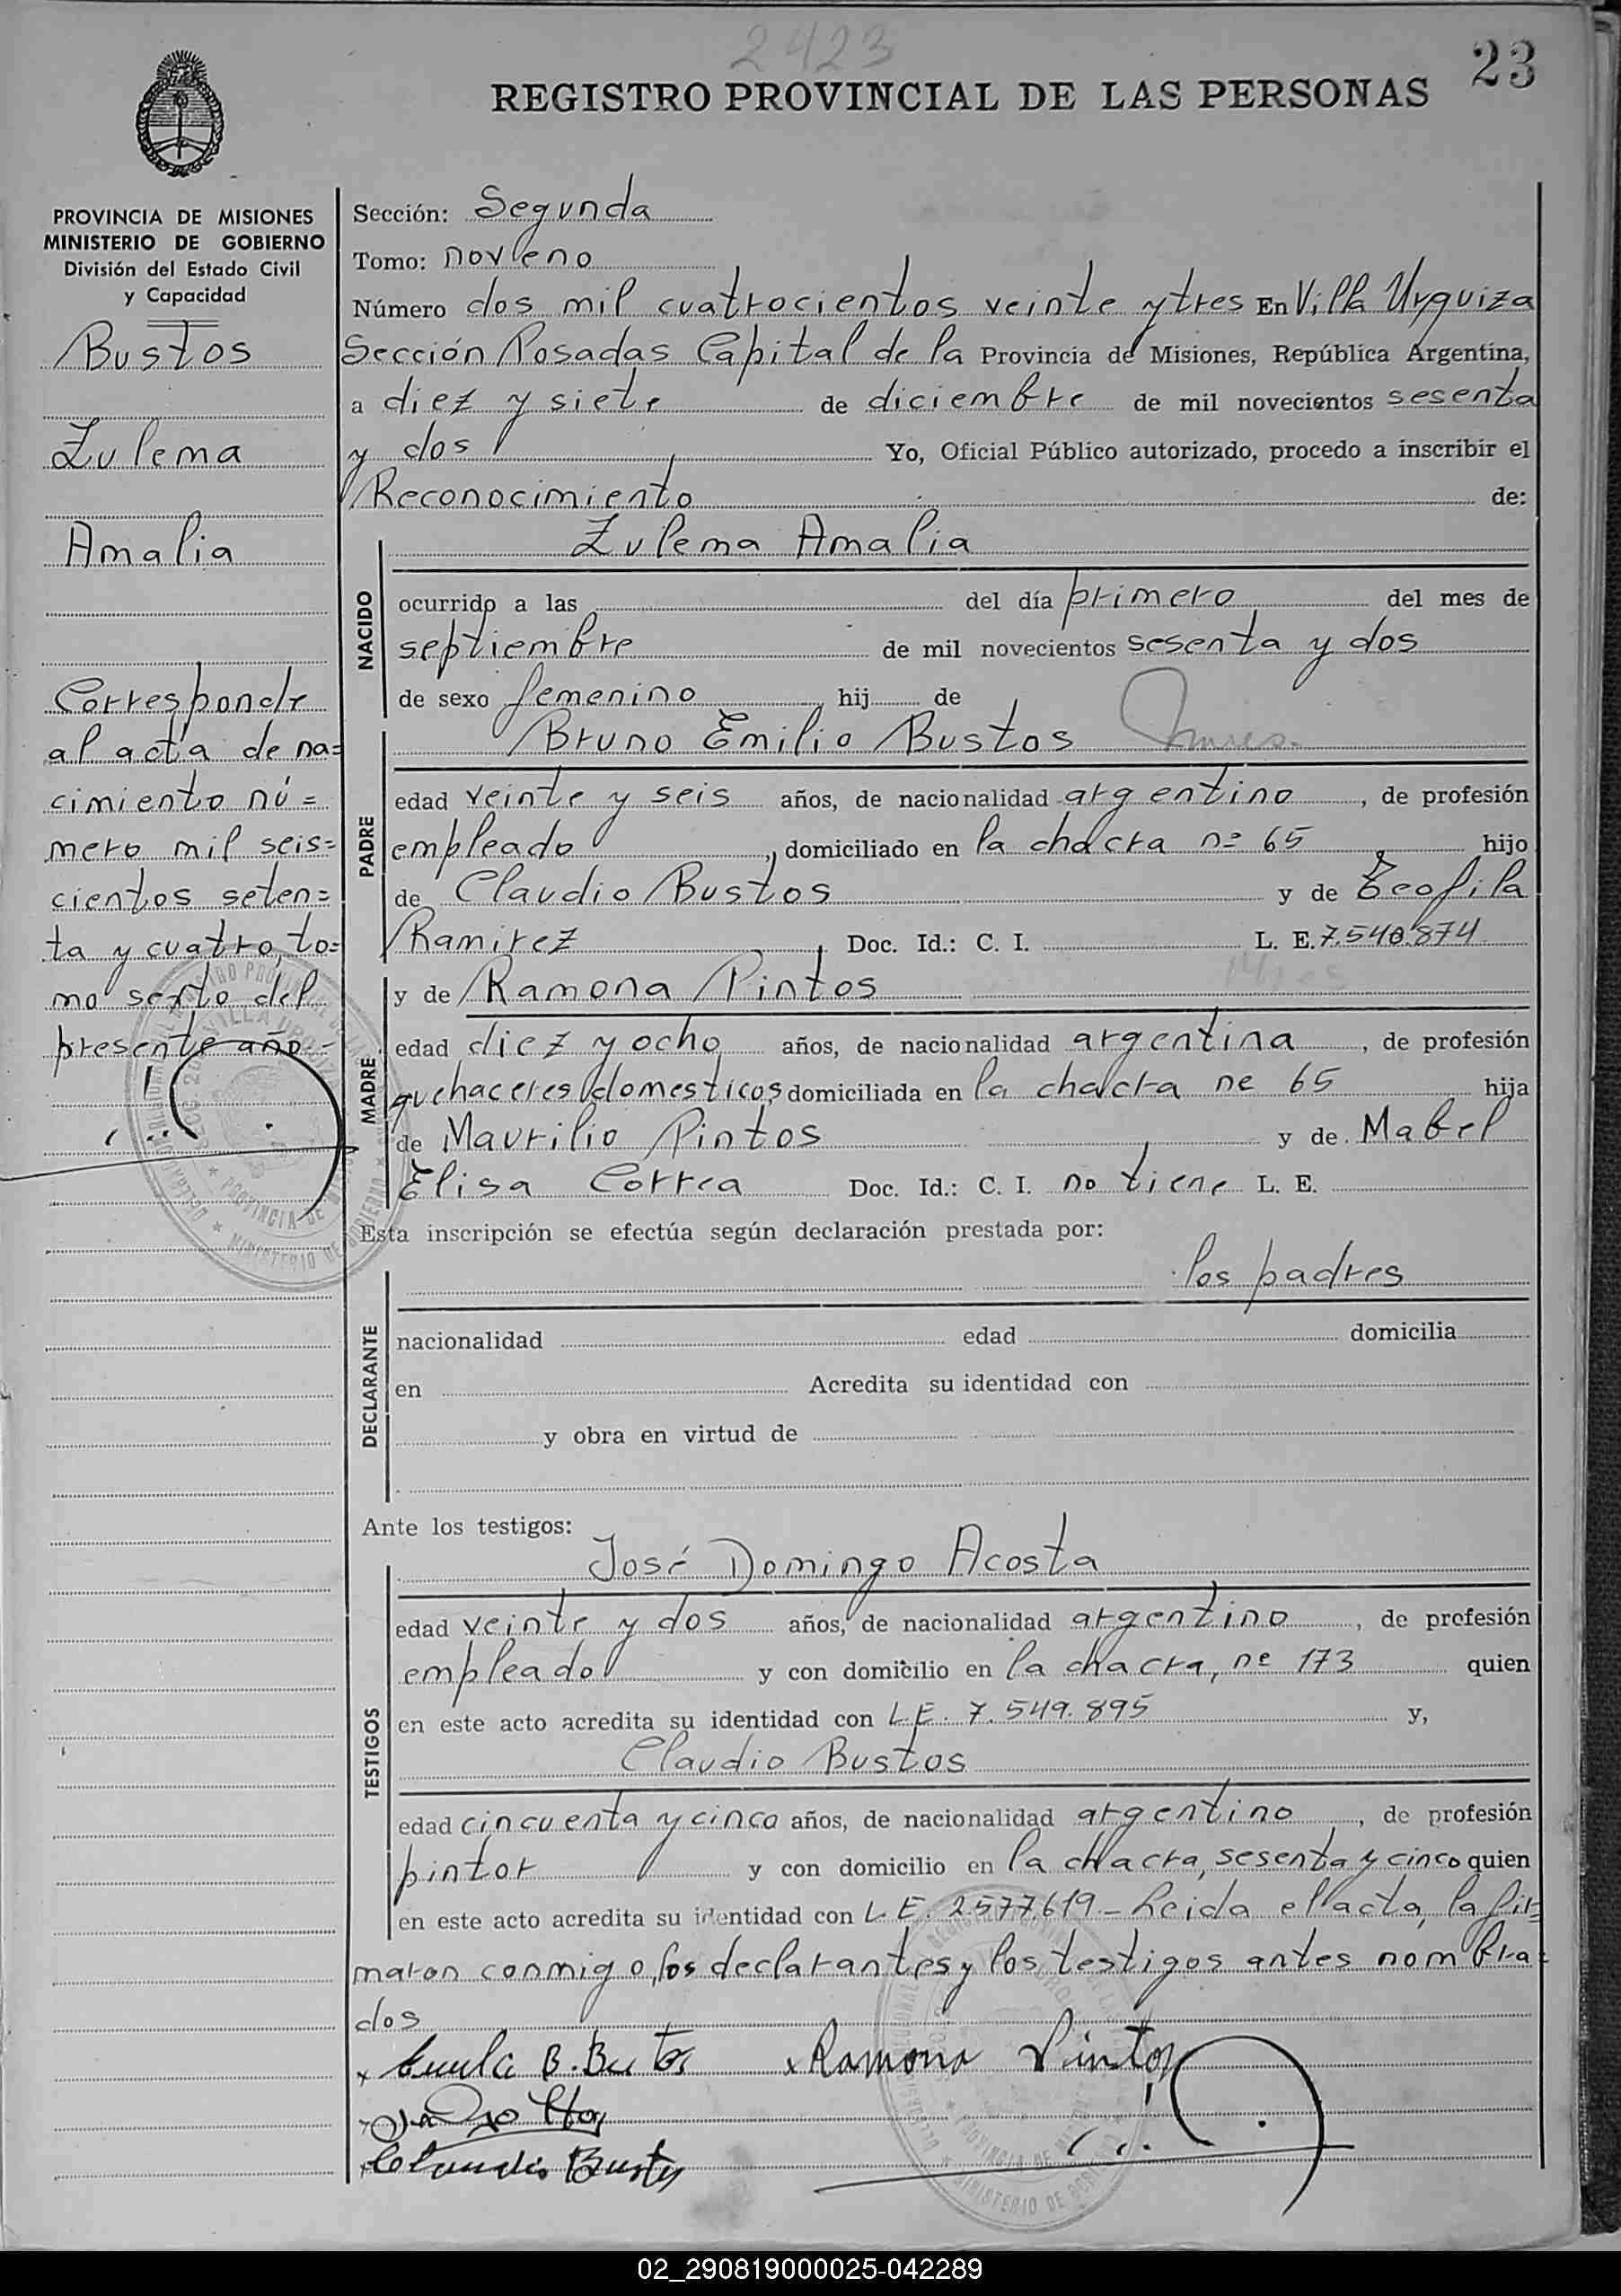 2423
23
REGISTRO PROVINCIAL DE LAS PERSONAS
PROVINCIA DE MISIONES
MINISTERIO DE GOBIERNO
División del Estado Civil
y Capacidad
Bustos
Zulema
Amalia
Corresponde
al acta de na=
cimiento nú=
mero mil seis=
cientos seten=
ta y cuatro, to=
mo sexto del
presente año.-
Sección: Segunda
Tomo: noveno
Número dos mil cuatrocientos veinte y tres En Villa Urquiza
Sección Posadas Capital de la Provincia de Misiones, República Argentina,
a diez y siete de diciembre de mil novecientos sesenta
y dos Yo, Oficial Público autorizado, procedo a inscribir el
Reconocimiento de:
NACIDO
Zulema Amalia
ocurrido a las del día primero del mes de
septiembre de mil novecientos sesenta y dos
de sexo femenino hij de
PADRE
Bruno Emilio Bustos
edad veinte y seis años, de nacionalidad argentino, de profesión
empleado, domiciliado en la chacra nº 65 hijo
de Claudio Bustos y de Teofila
Ramirez Doc. Id.: C. I. L. E. 7.540.874
MADRE
y de Ramona Pintos
edad diez y ocho años, de nacionalidad argentina, de profesión
quehaceres domesticos domiciliada en la chacra ne 65 hija
de Maurilio Pintos y de Mabel
Elisa Correa Doc. Id.: C. I. no tiene L. E.
Esta inscripción se efectúa según declaración prestada por:
los padres
DECLARANTE
nacionalidad edad domicilia
en Acredita su identidad con
y obra en virtud de
Ante los testigos:
TESTIGOS
José Domingo Acosta
edad veinte y dos años, de nacionalidad argentino, de profesión
empleado y con domicilio en la chacra, ne 173 quien
en este acto acredita su identidad con L.E. 7.549.895 y,
Claudio Bustos
edad cincuenta y cinco años, de nacionalidad argentino, de profesión
pintor y con domicilio en la chacra, sesenta y cinco quien
en este acto acredita su identidad con L.E. 2.577.619.- Leida el acta, la fir=
maron conmigo, los declarantes y los testigos antes nombra=
dos
x B. Bustos x Ramona Pintos
Claudio Bustos
02_290819000025-042289